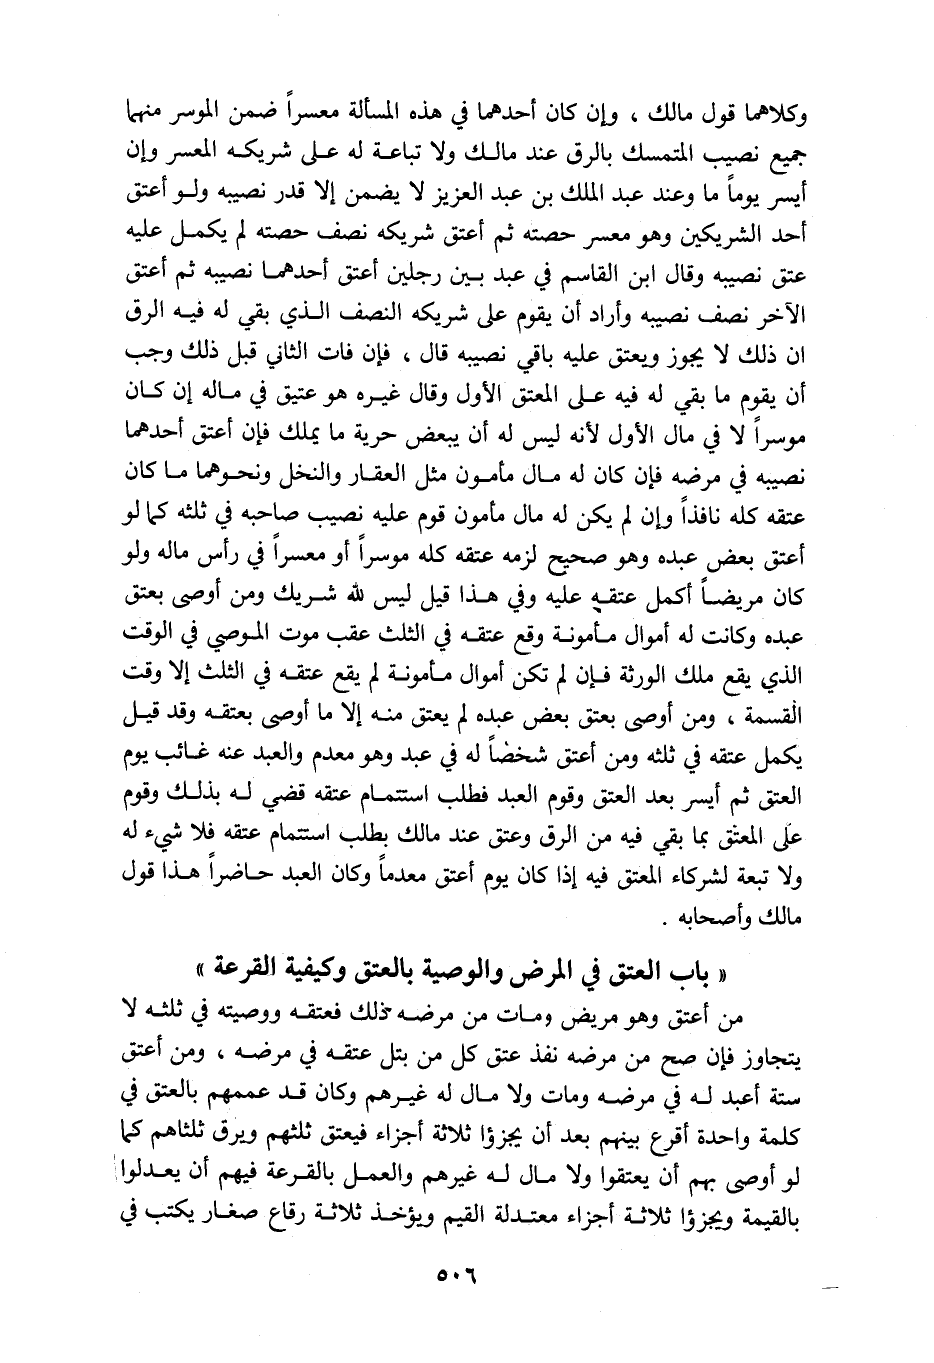 وكلاهما قول مالك ، وإن كان أحدهما في هذه المسألة معسراً ضمن الموسر منهما
جميع نصيب المتمسك بالرق عند مالك ولا تباعة له على شريكه المعسر وإن
أيسر يوماً ما وعند عبد الملك بن عبد العزيز لا يضمن إلا قدر نصيبه ولو أعتق
أحد الشريكين وهو معسر حصته ثم أعتق شريكه نصف حصته لم يكمل عليه
عتق نصيبه وقال ابن القاسم في عبد بين رجلين أعتق أحدهما نصيبه ثم أعتق
الآخر نصف نصيبه وأراد أن يقوم على شريكه النصف الذي بقي له فيه الرق
ان ذلك لا يجوز ويعتق عليه باقي نصيبه قال ، فإن فات الثاني قبل ذلك وجب
أن يقوم ما بقي له فيه على المعتق الأول وقال غيره هو عتيق في ماله إن كان
موسراً لا في مال الأول لأنه ليس له أن يبعض حرية ما يملك فإن أعتق أحدهما
نصيبه في مرضه فإن كان له مال مأمون مثل العقار والنخل ونحوهما ما كان
عتقه كله نافذاً وإن لم يكن له مال مأمون قوم عليه نصيب صاحبه في ثلثه كما لو
أعتق بعض عبده وهو صحيح لزمه عتقه كله موسراً أو معسراً في رأس ماله ولو
كان مريضاً أكمل عتقه عليه وفي هذا قيل ليس لله شريك ومن أوصى بعتق
عبده وكانت له أموال مأمونة وقع عتقه في الثلث عقب موت الموصي في الوقت
الذي يقع ملك الورثة فإن لم تكن أموال مأمونة لم يقع عتقه في الثلث إلا وقت
القسمة ، ومن أوصى بعتق بعض عبده لم يعتق منه إلا ما أوصى بعتقه وقد قيل
يكمل عتقه في ثلثه ومن أعتق شخصاً له في عبد وهو معدم والعبد عنه غائب يوم
العتق ثم أيسر بعد العتق وقوم العبد فطلب استتمام عتقه قضي له بذلك وقوم
على المعتق بما بقي فيه من الرق وعتق عند مالك بطلب استتمام عتقه فلا شيء له
ولا تبعة لشركاء المعتق فيه إذا كان يوم أعتق معدماً وكان العبد حاضراً هذا قول
مالك وأصحابه .
« باب العتق في المرض والوصية بالعتق وكيفية القرعة »
من أعتق وهو مريض ومات من مرضه ذلك فعتقه ووصيته في ثلثه لا
يتجاوز فإن صح من مرضه نفذ عتق كل من بتل عتقه في مرضه ، ومن أعتق
ستة أعبد له في مرضه ومات ولا مال له غيرهم وكان قد عممهم بالعتق في
كلمة واحدة أقرع بينهم بعد أن يجزؤا ثلاثة أجزاء فيعتق ثلثهم ويرق ثلثاهم كما
لو أوصى بهم أن يعتقوا ولا مال له غيرهم والعمل بالقرعة فيهم أن يعدلوا
بالقيمة ويجزؤا ثلاثة أجزاء معتدلة القيم ويؤخذ ثلاثة رقاع صغار يكتب في
٥٠٦